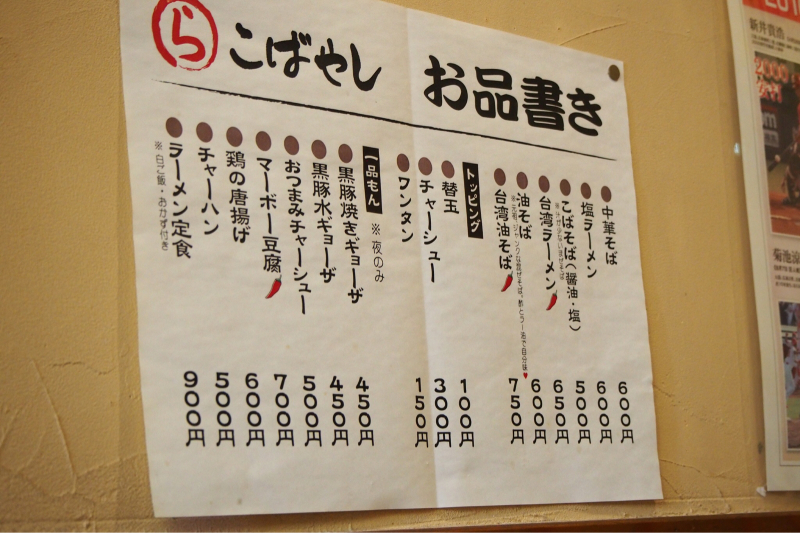 ら こばやし お品書き
中華そば 600円
塩ラーメン 600円
こばそば(醤油・塩) 500円
※汁がないまぜそば
台湾ラーメン 650円
油そば 600円
台湾油そば 750円
トッピング
替玉 100円
チャーシュー 300円
ワンタン 150円
一品もん ※夜のみ
黒豚焼きギョーザ 450円
黒豚水ギョーザ 450円
おつまみチャーシュー 500円
マーボー豆腐 700円
鶏の唐揚げ 600円
チャーハン 500円
ラーメン定食 900円
※白ご飯・おかず付き
新井貴浩
菊池涼